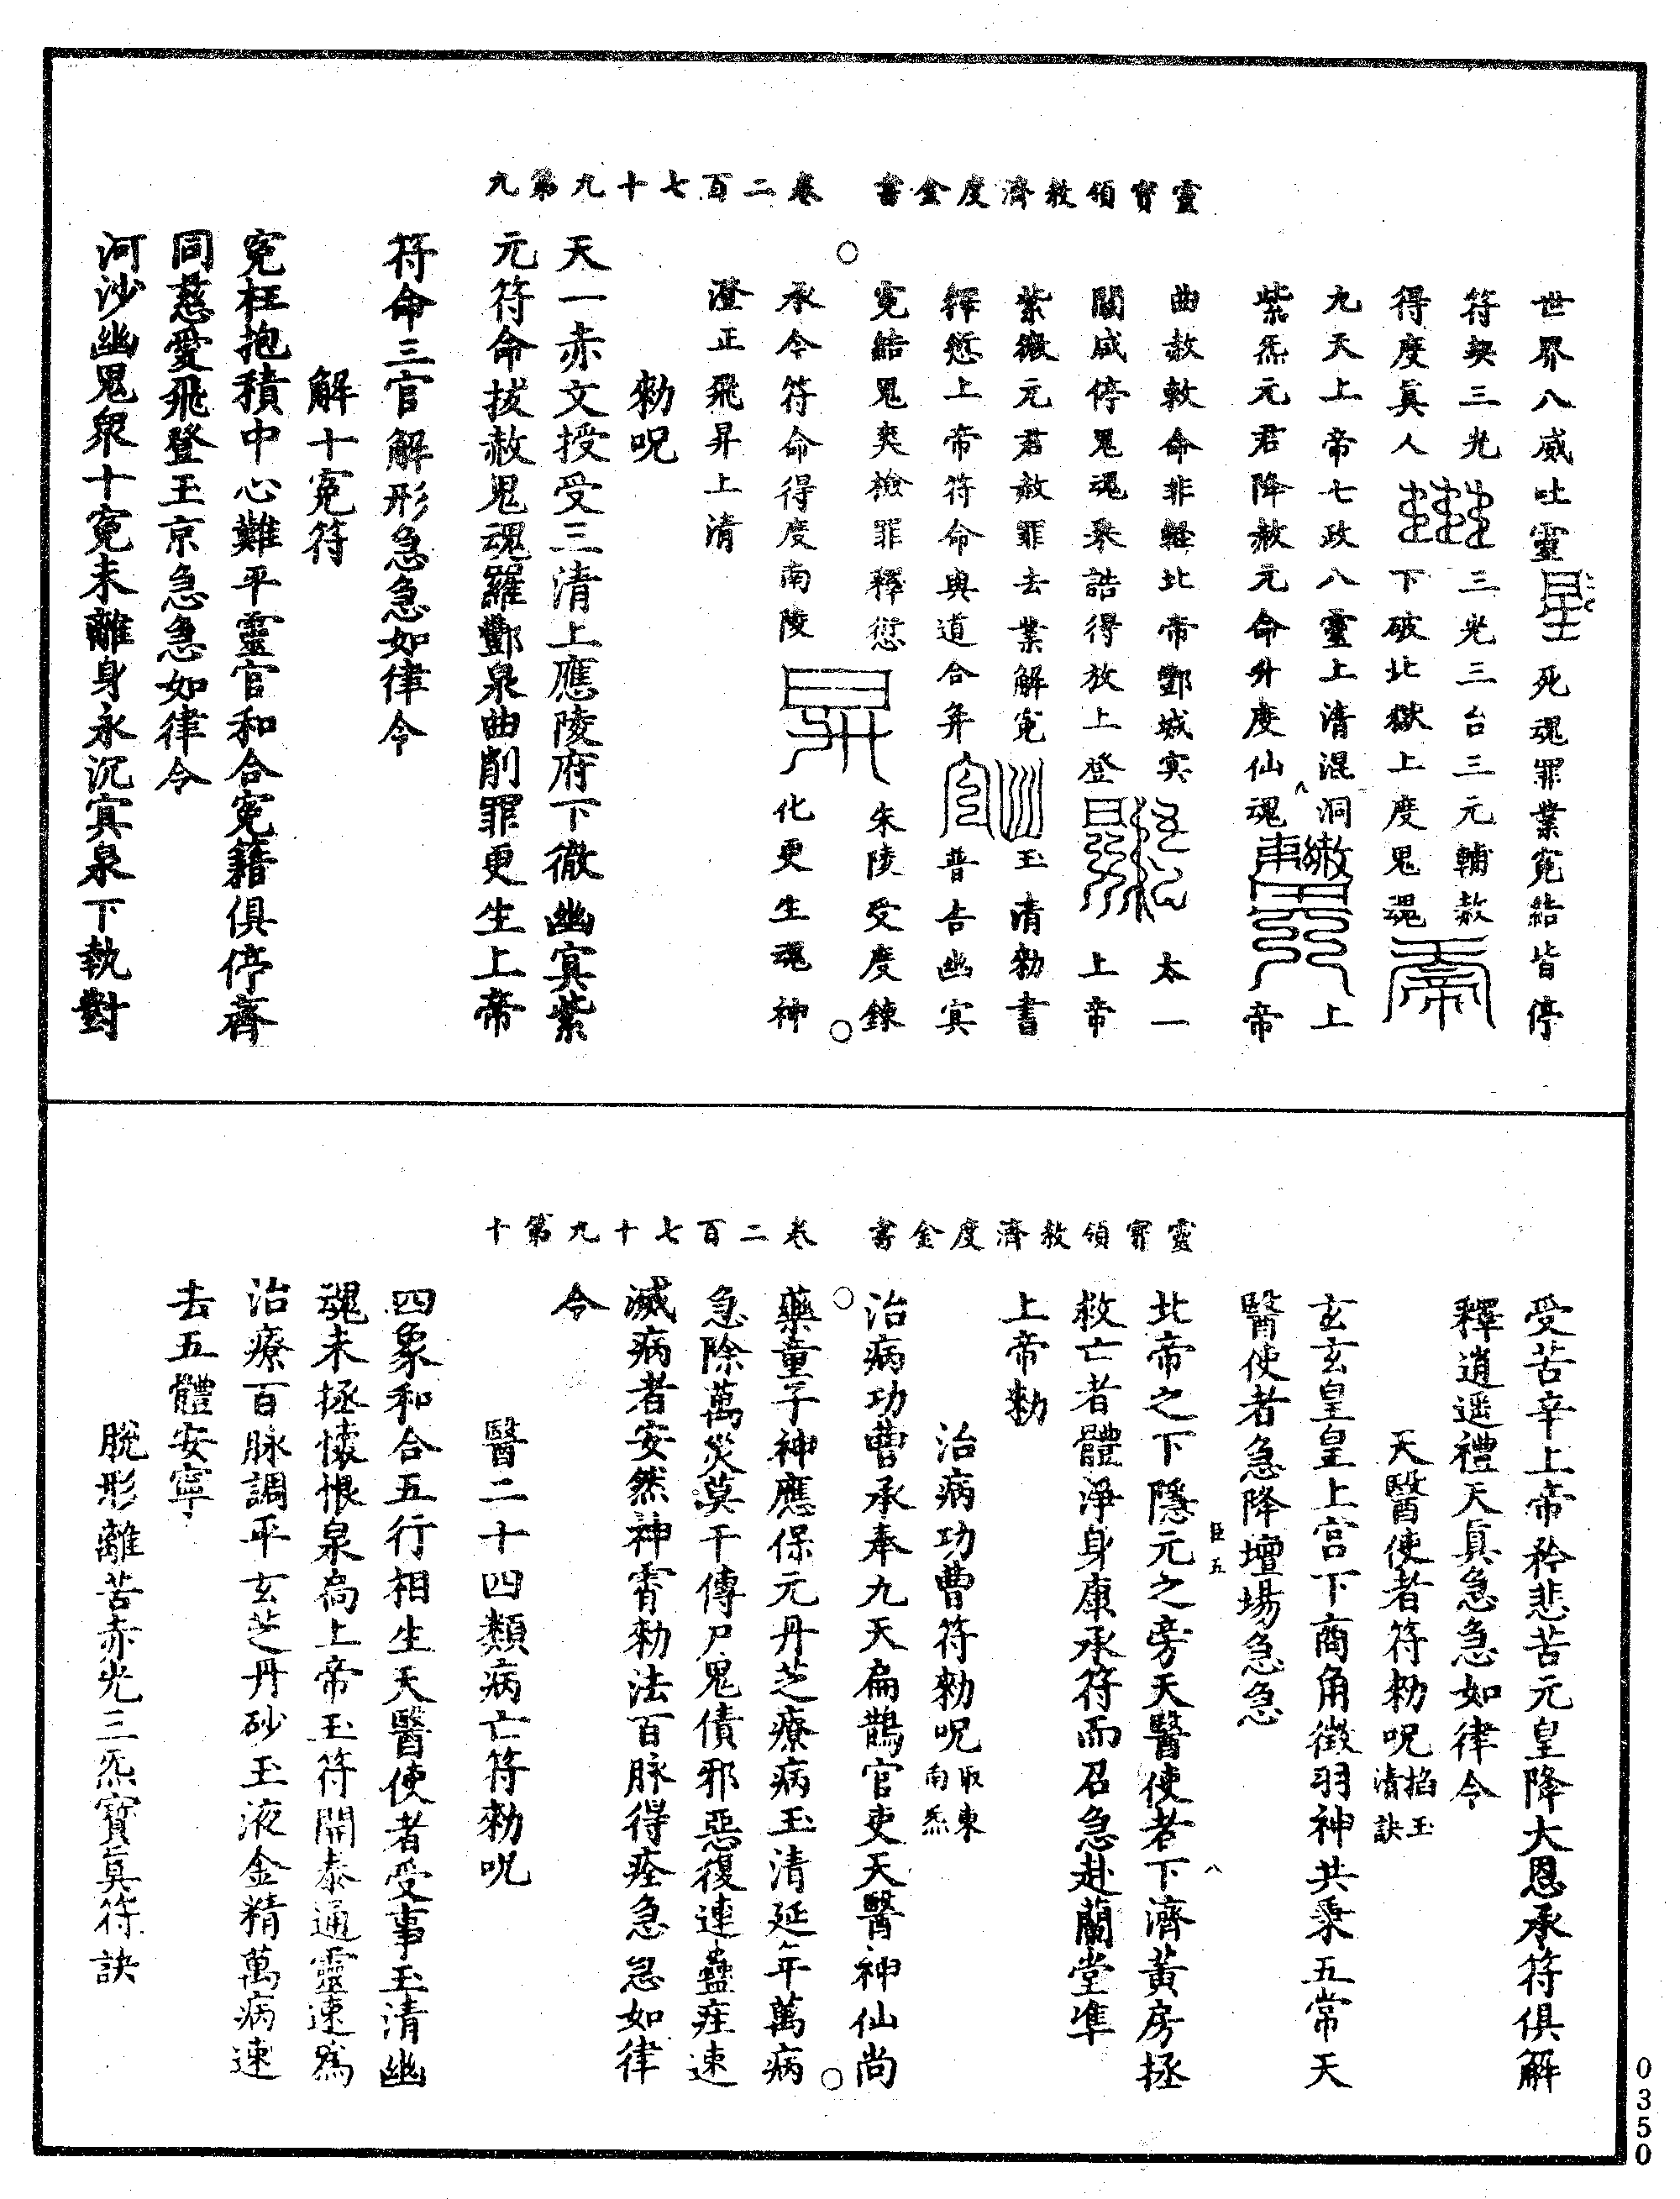 靈寶領教濟度金書　卷二百七十九第九
世界八威吐靈死魂罪業冤結皆停
符契三光三光三台三元輔赦
得度真人下破北獄上度鬼魂
九天上帝七政八靈上清混洞上
紫炁元君降赦元命升度仙魂帝
曲赦敕命非輕北帝酆城冥太一
關咸停鬼魂乘誥得放上登上帝
紫微元君赦罪去業解冤玉清勑書
釋愆上帝符命與道合并普告幽冥
冤結鬼爽檢罪釋愆朱陵受度鍊
承今符命得度南陵化更生魂神
澄正飛昇上清
勑呪
天一赤文授受三清上應陵府下徹幽冥紫
元符命拔赦鬼魂羅酆泉曲削罪更生上帝
符命三官解形急急如律令
解十冤符
冤枉抱積中心難平靈官和合冤籍俱停齊
同慈愛飛登玉京急急如律令
河沙幽鬼衆十冤未離身永沉冥泉下執對
靈寶領教濟度金書　卷二百七十九第十
受苦辛上帝矜悲苦元皇降大恩承符俱解
釋逍遥禮天真急急如律令
天醫使者符勑呪掐玉清訣
玄玄皇皇上宮下商角徵羽神共乘五常天
醫使者急降壇場急急
北帝之下隱元之旁天醫使者下濟黃房拯
救亡者體淨身康承符而召急赴蘭堂準
上帝勑
治病功曹符勑呪取東南炁
治病功曹承奉九天扁鵲官吏天醫神仙尚
藥童子神應保元丹芝療病玉清延年萬病
急除萬災莫干傳尸鬼債邪惡復連蠱疰速
滅病者安然神霄勑法百脉得痊急急如律
令
醫二十四類病亡符勑呪
四象和合五行相生天醫使者受事玉清幽
魂未拯懷恨泉扃上帝玉符開泰通靈速爲
治療百脉調平玄芝丹砂玉液金精萬病速
去五體安寧
脫形離苦赤光三炁寶真符訣
0350